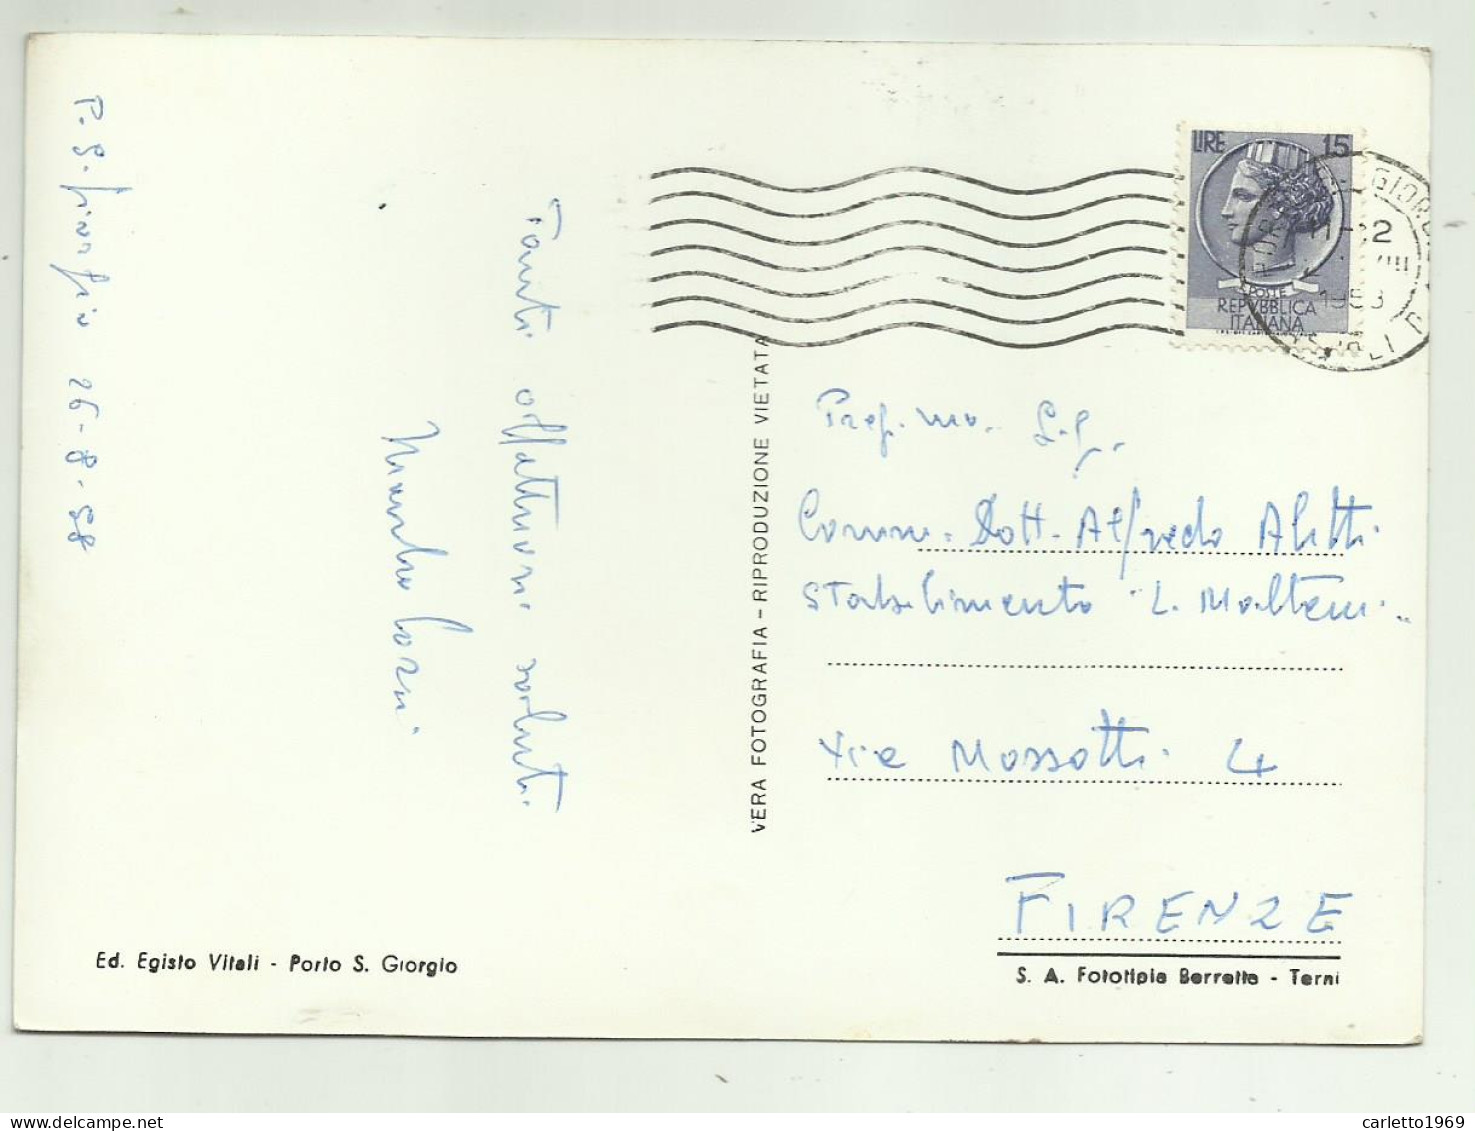 P. S. Giorgio 26-8-58
Tanti affettuosi saluti
LIRE 15
POSTE
REPVBBLICA
ITALIANA
1958
VERA FOTOGRAFIA - RIPRODUZIONE VIETATA
Preg.mo Sig.
Comm. Dott. Alfredo Aletti
Stabilimento L. Molteni
Via Mossotti 4
FIRENZE
Ed. Egisto Vitali - Porto S. Giorgio
S. A. Fototipia Berretta - Terni
carletto1969